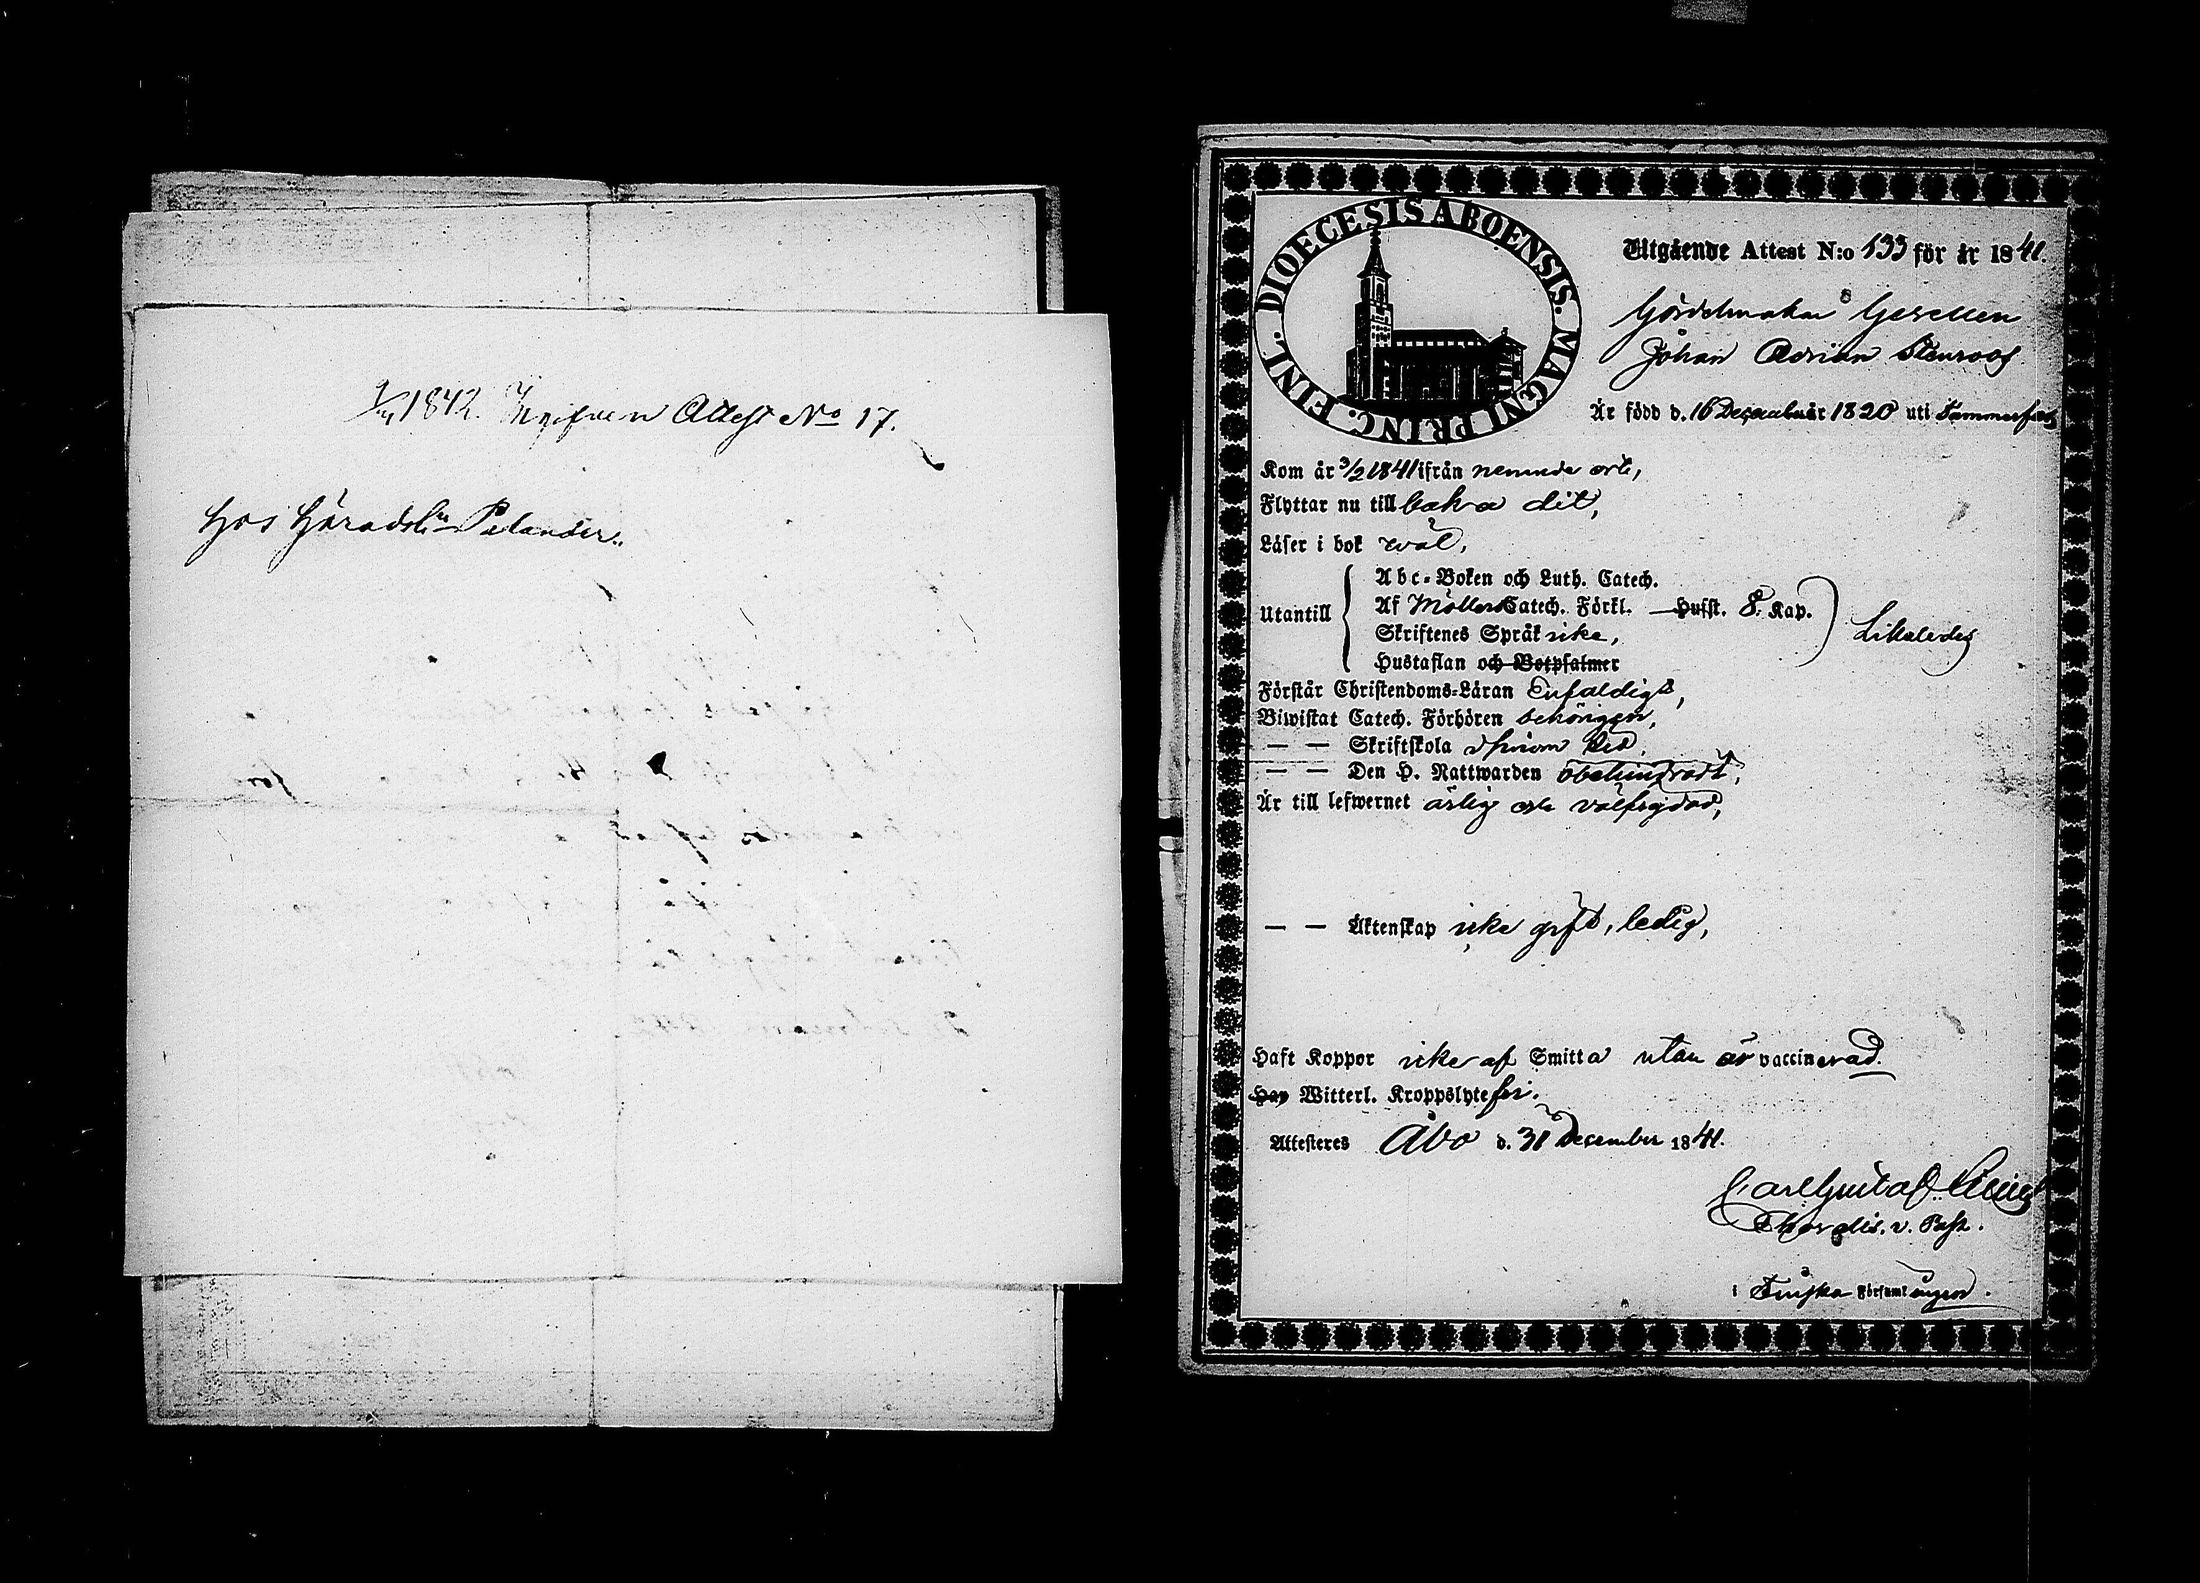 1842. Ingifven Attest No 17.
Hos Häradsh. Palander.
DIOECESIS ABOENSIS. MAGNI PRINC. FINL.
Utgående Attest N:o 133 för år 1841.
Gördelmakar Gesellen
Johan Adrian Stenroos
Är född d. 16 December 1820 uti Tammerfors
Kom år 3/2 1841 ifrån nemnde ort,
Flyttar nu till baka dit,
Läser i bok wäl,
Abc-Boken och Luth. Catech.
Utantill Af Möllers Catech. Förkl. Husst. 8. Kap. Likaledes
Skriftenes Språk icke,
Hustaflan och Botpsalmer
Förstår Christendoms-Läran Enfaldigt,
Biwistat Catech. Förhören behörigen,
— — Skriftskola
— — Den H. Nattwarden obehindradt,
Är till lefwernet ärlig och välfrejdad,
— — Äktenskap icke gift, ledig,
Haft Koppor icke af Smitta utan är vaccinerad.
Hay Witterl. Kroppslyte fri.
Attesteres Åbo d. 31 December 1841.
Carl Gustaf
v. Past.
i Finska Församlingen.